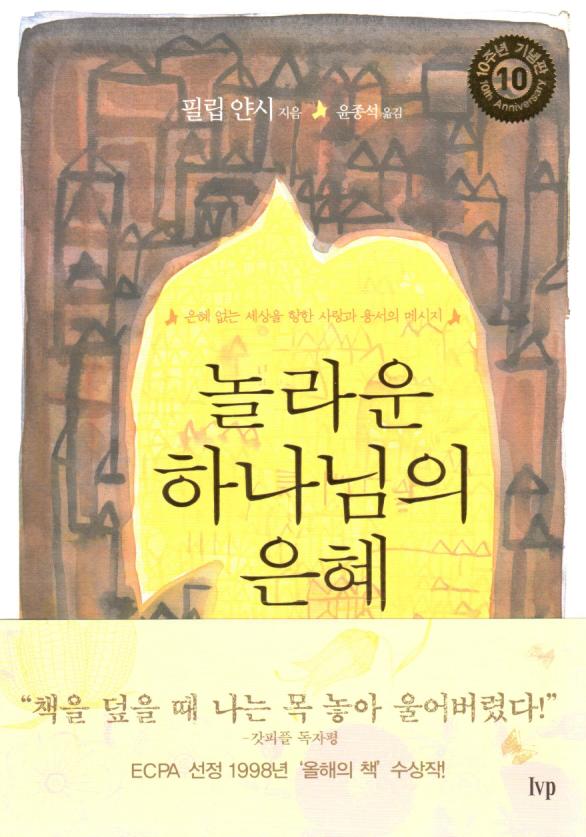 10주년 기념판
10
10th Anniversary
필립 얀시 지음 윤종석 옮김
은혜 없는 세상을 향한 사랑과 용서의 메시지
놀라운
하나님의
은혜
“책을 덮을 때 나는 목 놓아 울어버렸다!”
-갓피플 독자평
ECPA 선정 1998년 ‘올해의 책’ 수상작!
Ivp